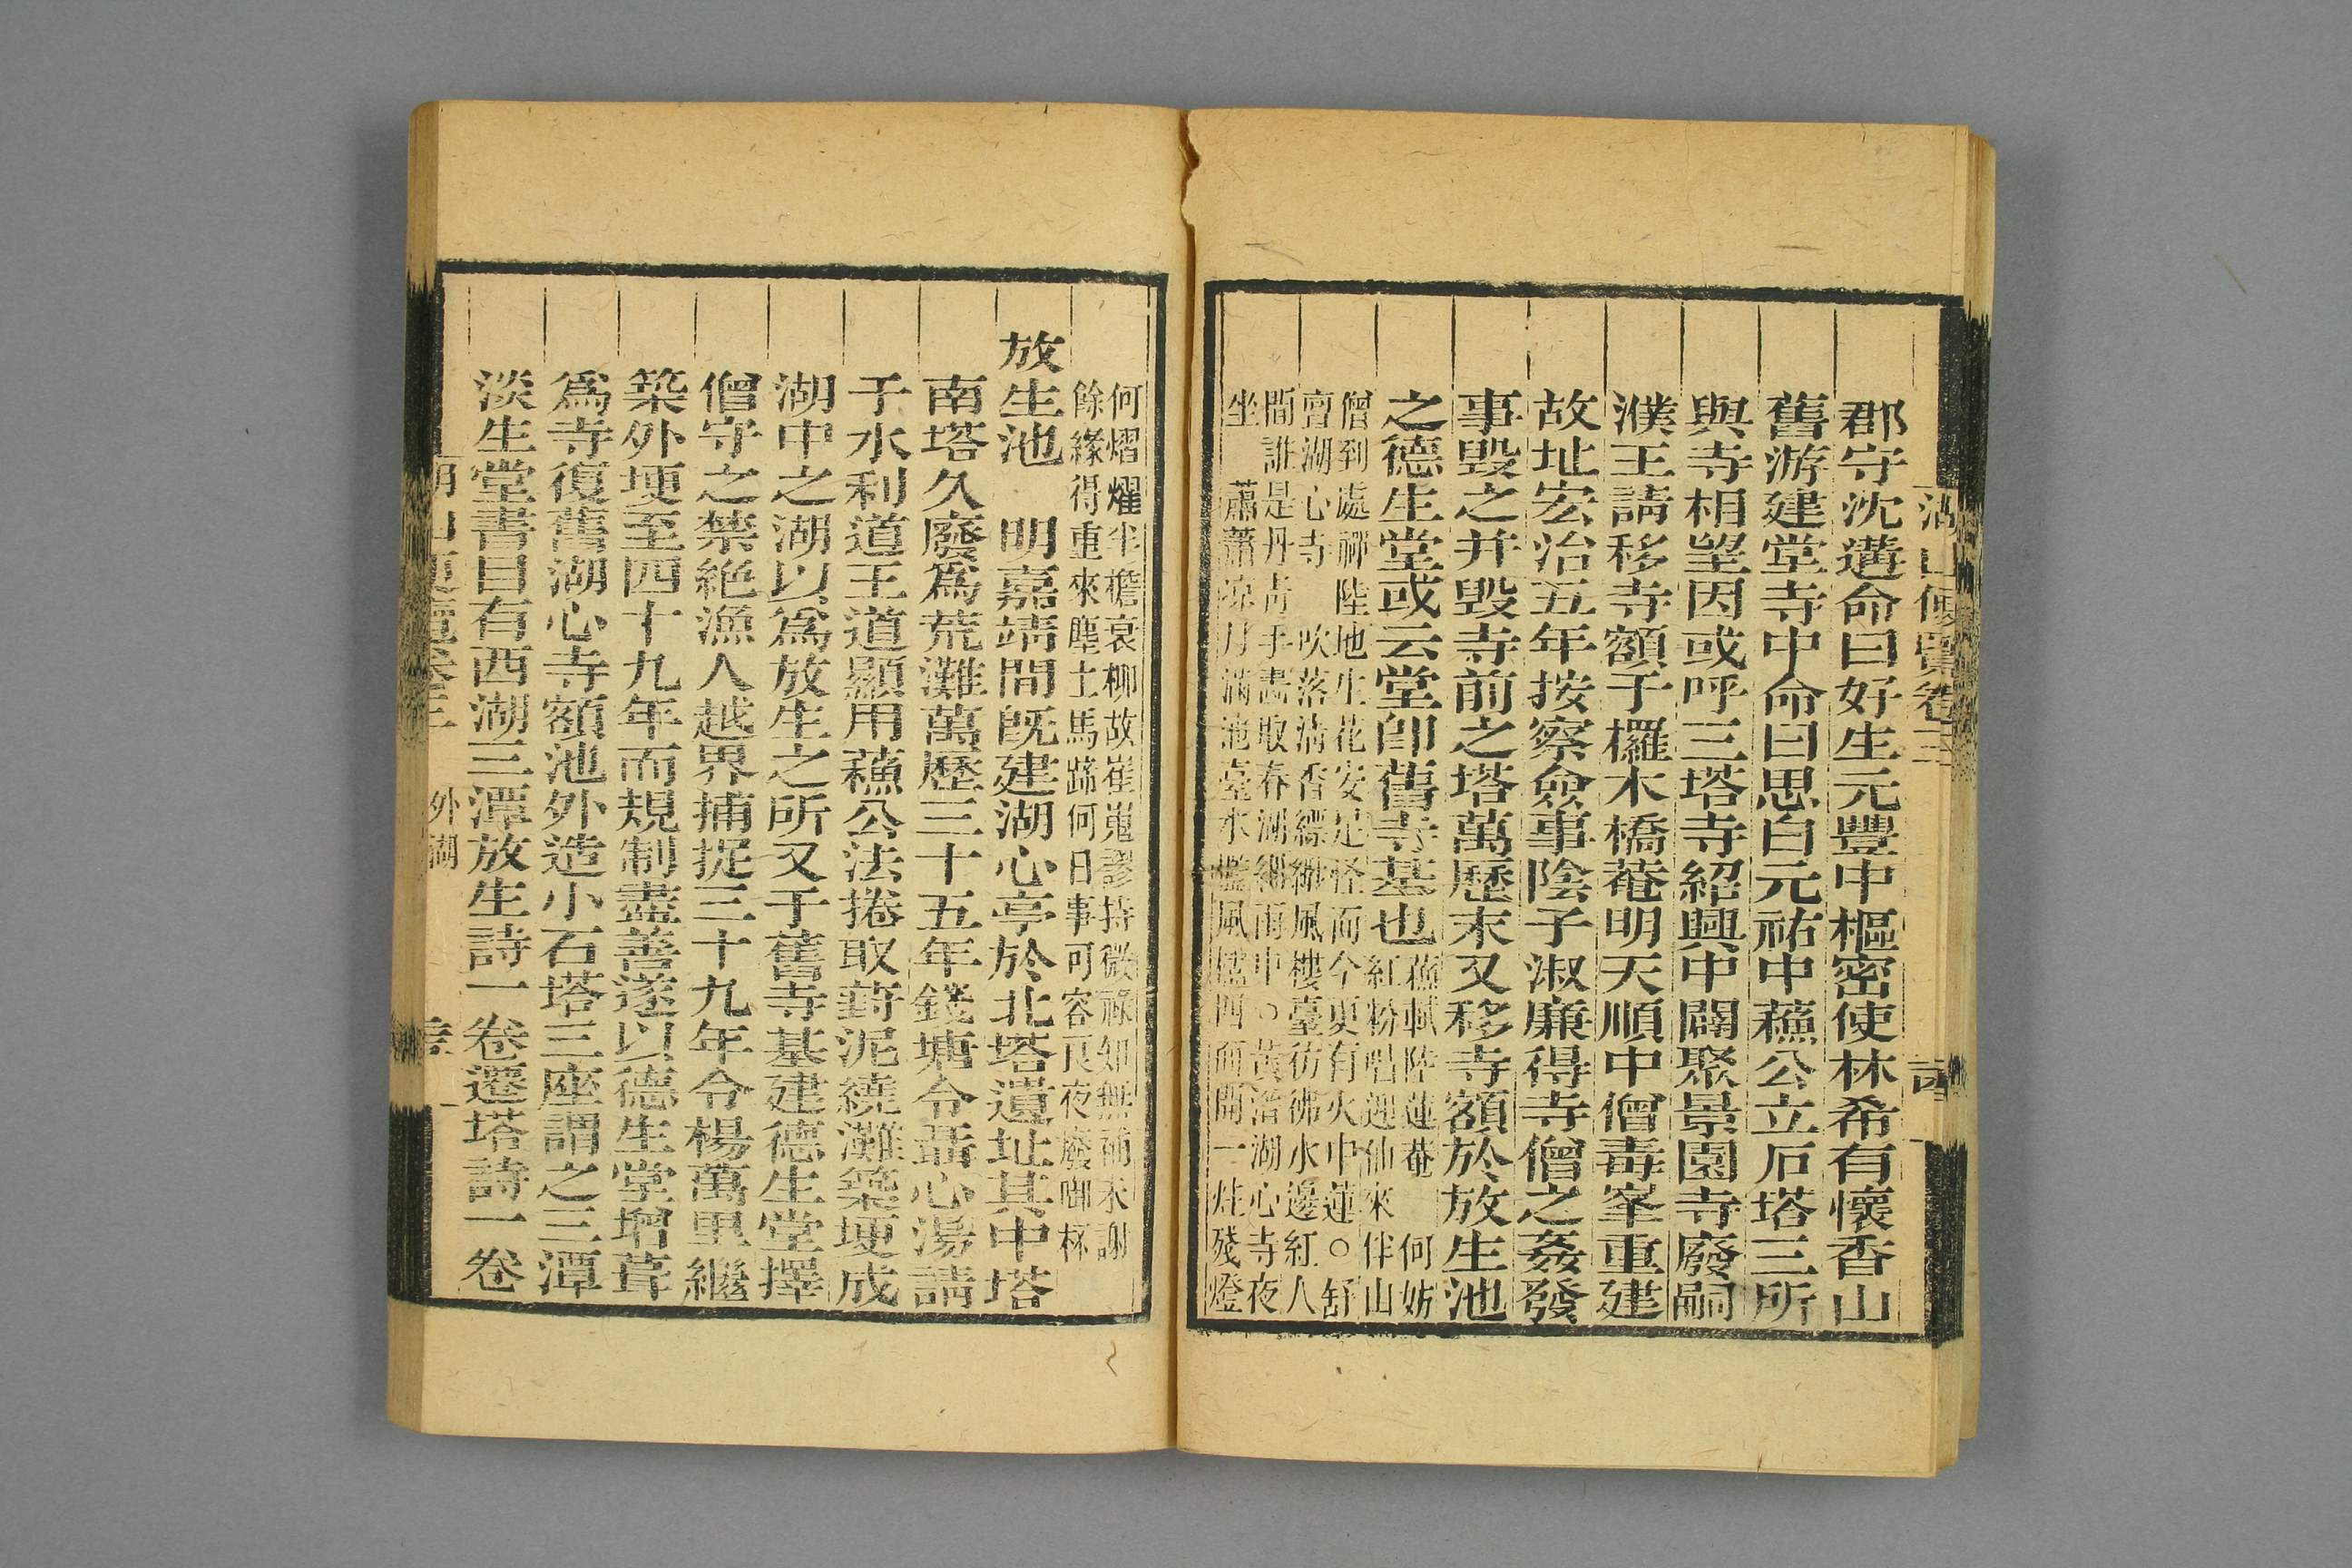 湖山便覽卷三
郡守沈遘命曰好生元豐中樞密使林希有懷香山
舊游建堂寺中命曰思白元祐中蘇公立石塔三所
與寺相望因或呼三塔寺紹興中闢聚景園寺廢嗣
濮王請移寺額于欏木橋菴明天順中僧毒峯重建
故址宏治五年按察僉事陰子淑廉得寺僧之姦發
事毀之并毀寺前之塔萬歷末又移寺額於放生池
之德生堂或云堂卽舊寺基也
蘇軾陸蓮菴 何妨
紅粉唱迎仙來伴山
僧到處禪陸地生花安足怪而今更有火中蓮○舒
亶湖心寺 吹落淸香縹緲風樓臺彷彿水邊紅人
間誰是丹靑手畵取春湖細雨中○黃治湖心寺夜
坐 蕭蕭凉月滿池臺水檻風櫺四面開一炷殘燈
何熠燿半檐衰柳故崔嵬謬持微祿知無補未謝
餘緣得重來塵土馬蹄何日事可容良夜廢啣杯
放生池 明嘉靖間旣建湖心亭於北塔遺址其中塔
南塔久廢爲荒灘萬歷三十五年錢塘令聶心湯請
于水利道王道顯用蘇公法捲取葑泥繞灘築埂成
湖中之湖以爲放生之所又于舊寺基建德生堂擇
僧守之禁絕漁人越界捕捉三十九年令楊萬里繼
築外埂至四十九年而規制盡善遂以德生堂增葺
爲寺復舊湖心寺額池外造小石塔三座謂之三潭
淡生堂書目有西湖三潭放生詩一卷遷塔詩一卷
湖山便覽卷三 外湖